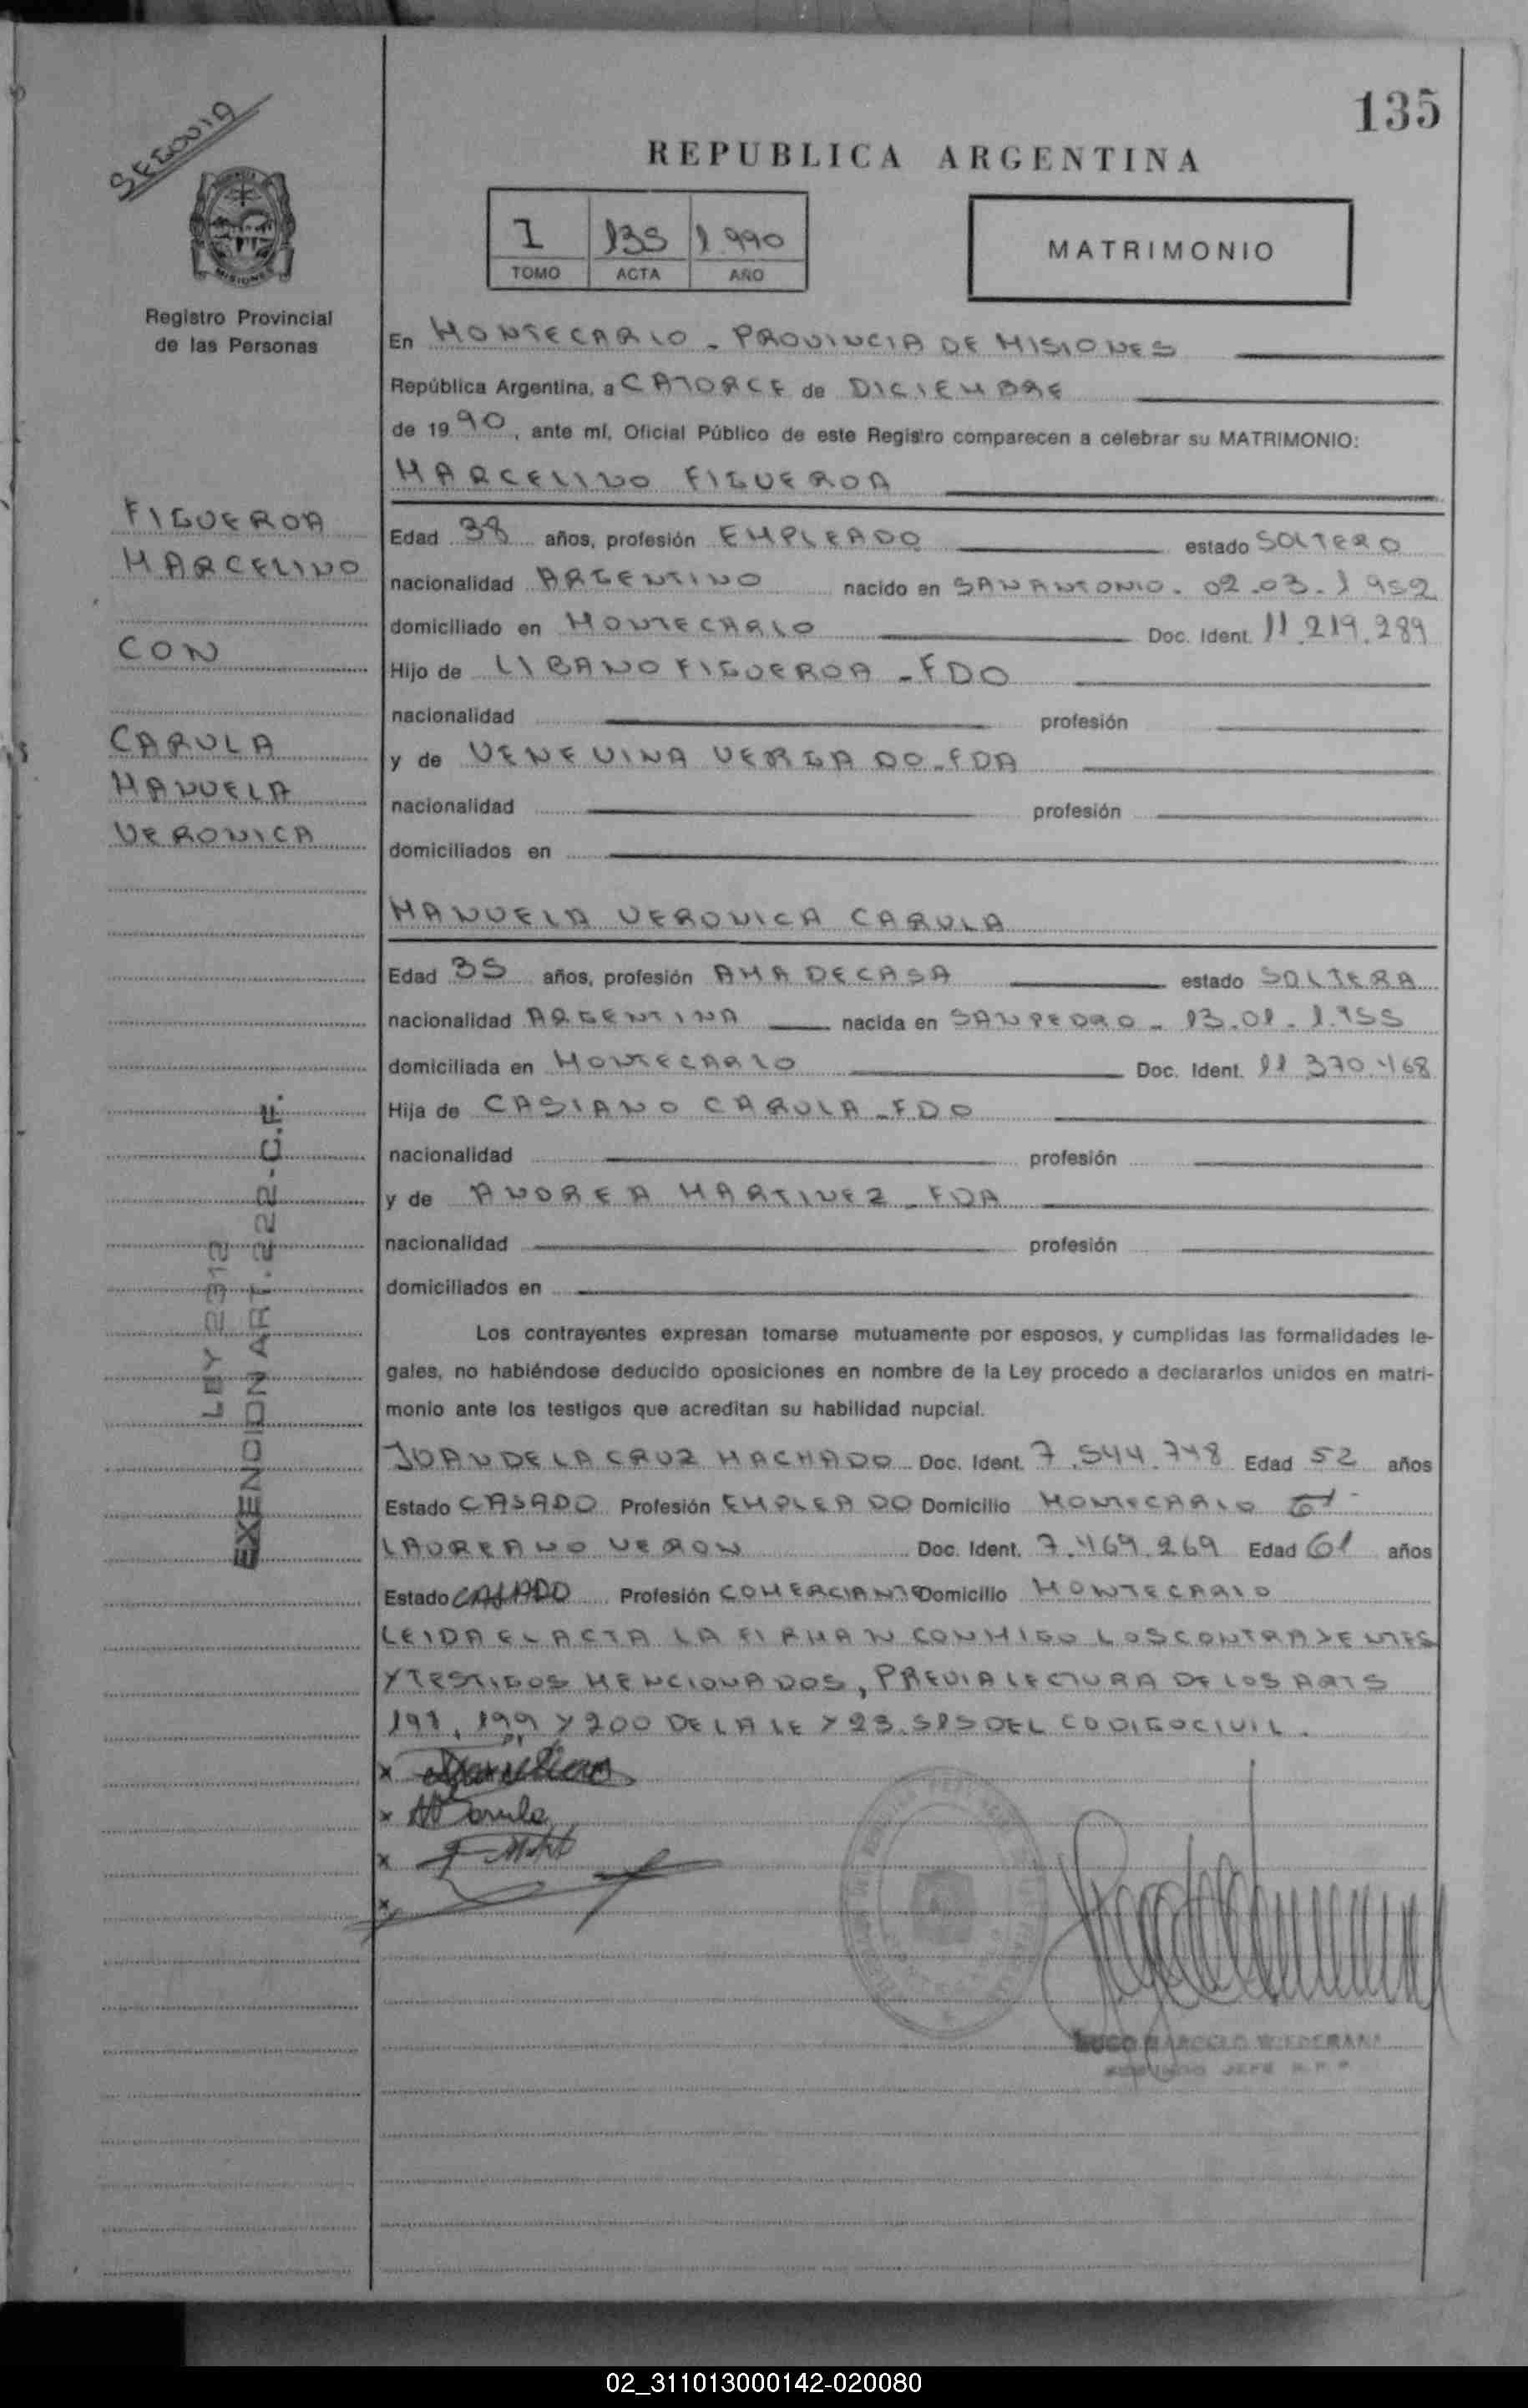 135
SEGOVIA
REPUBLICA ARGENTINA
I 135 1.990
TOMO ACTA AÑO
MATRIMONIO
MISIONES
Registro Provincial
de las Personas
FIGUEROA
MARCELINO
CON
CARULA
MANUELA
VERONICA
LEY 2312
EXENCION ART. 222 - C.F.
En MONTECARLO - PROVINCIA DE MISIONES
República Argentina, a CATORCE de DICIEMBRE
de 1990, ante mí, Oficial Público de este Registro comparecen a celebrar su MATRIMONIO:
MARCELINO FIGUEROA
Edad 38 años, profesión EMPLEADO estado SOLTERO
nacionalidad ARGENTINO nacido en SAN ANTONIO. 02.03.1952
domiciliado en MONTECARLO Doc. Ident. 11.219.289
Hijo de LIBANO FIGUEROA - FDO
nacionalidad profesión
y de VENEVINA VERGADO - FDA
nacionalidad profesión
domiciliados en
MANUELA VERONICA CARULA
Edad 35 años, profesión AMA DE CASA estado SOLTERA
nacionalidad ARGENTINA nacida en SAN PEDRO - 13.01.1.955
domiciliada en MONTECARLO Doc. Ident. 11.370.468
Hija de CASIANO CARULA - FDO
nacionalidad profesión
y de ANDREA MARTINEZ - FDA
nacionalidad profesión
domiciliados en
Los contrayentes expresan tomarse mutuamente por esposos, y cumplidas las formalidades le-
gales, no habiéndose deducido oposiciones en nombre de la Ley procedo a declararlos unidos en matri-
monio ante los testigos que acreditan su habilidad nupcial.
JUAN DE LA CRUZ MACHADO Doc. Ident. 7.544.748 Edad 52 años
Estado CASADO Profesión EMPLEADO Domicilio MONTECARLO
LAUREANO VERON Doc. Ident. 7.469.269 Edad 61 años
Estado CASADO Profesión COMERCIANTE Domicilio MONTECARLO
LEIDA EL ACTA LA FIRMAN CONMIGO LOS CONTRAYENTES
Y TESTIGOS MENCIONADOS, PREVIA LECTURA DE LOS ARTS
198, 199 Y 200 DE LA LEY 23.515 DEL CODIGO CIVIL.
x
x M Carula
x
x
HUGO MARCELO WIEDERANN
JEFE R.P.P
02_311013000142-020080